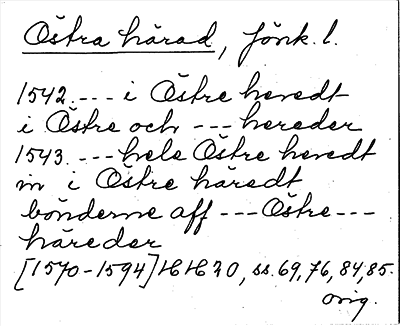 Östra härad, Jönk. l.
1542. --- i Östre heredt
i Östre och --- hereder
1543. --- hele Östre heredt
m i Östre häredt
bönderne aff --- Östre ---
häreder
[1570-1594] HH 20, ss. 69, 76, 84, 85.
orig.